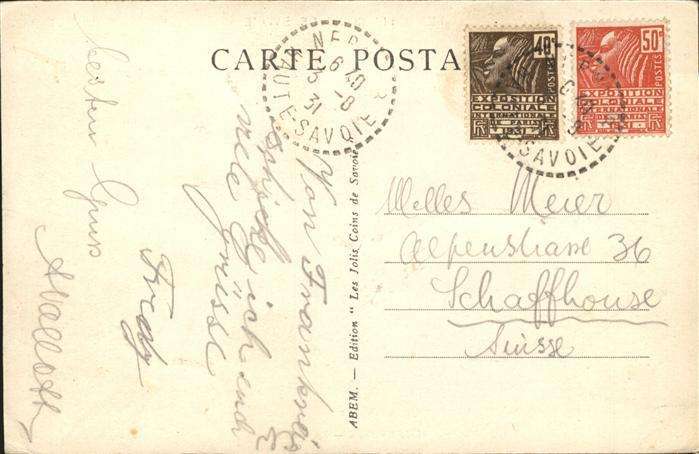 CARTE POSTA
NER
6-10
5-8
31
HAUTE-SAVOIE
40c
POSTES
EXPOSITION
COLONIALE
INTERNATIONALE
PARIS
1931
RF
50c
POSTES
EXPOSITION
COLONIALE
INTERNATIONALE
PARIS
1931
RF
SAVOIE
ABEM. — Edition " Les Jolis Coins de Savoie
Von Frankreich
schicke ich euch
viele Grüsse
Fredy
besten Gruss
A Vallott
Melles Meier
Alpenstrasse 36
Schaffhouse
Suisse